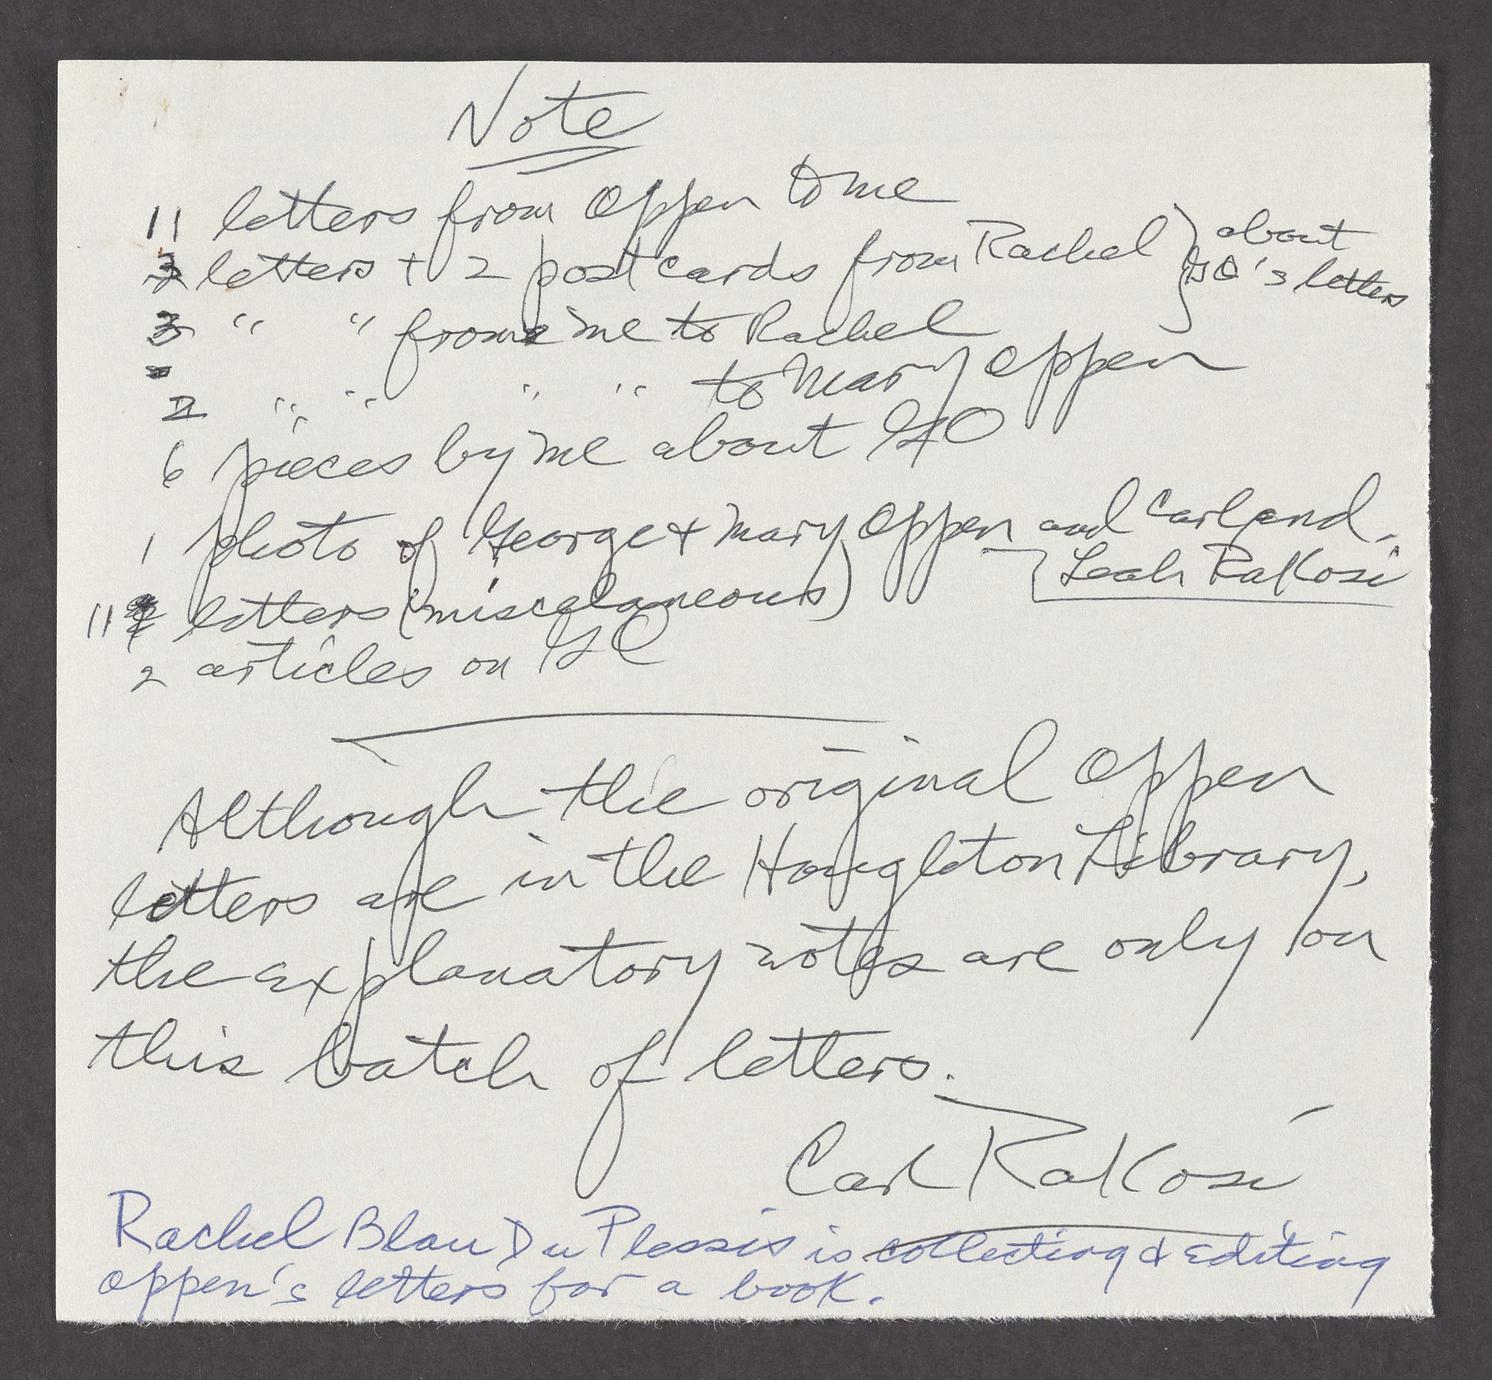 Note
11 letters from Oppen to me
3 letters + 2 postcards from Rachel } about
GO's letters
3 " " from me to Rachel
2 " " " " to Mary Oppen
6 pieces by me about GO
1 photo of George & Mary Oppen and Carl and
Leah Rakosi
11 letters (miscelaneous)
2 articles on GO
Although the original Oppen
letters are in the Houghton Library,
the explanatory notes are only on
this batch of letters.
Carl Rakosi
Rachel Blau Du Plessis is collecting & editing
Oppen's letters for a book.